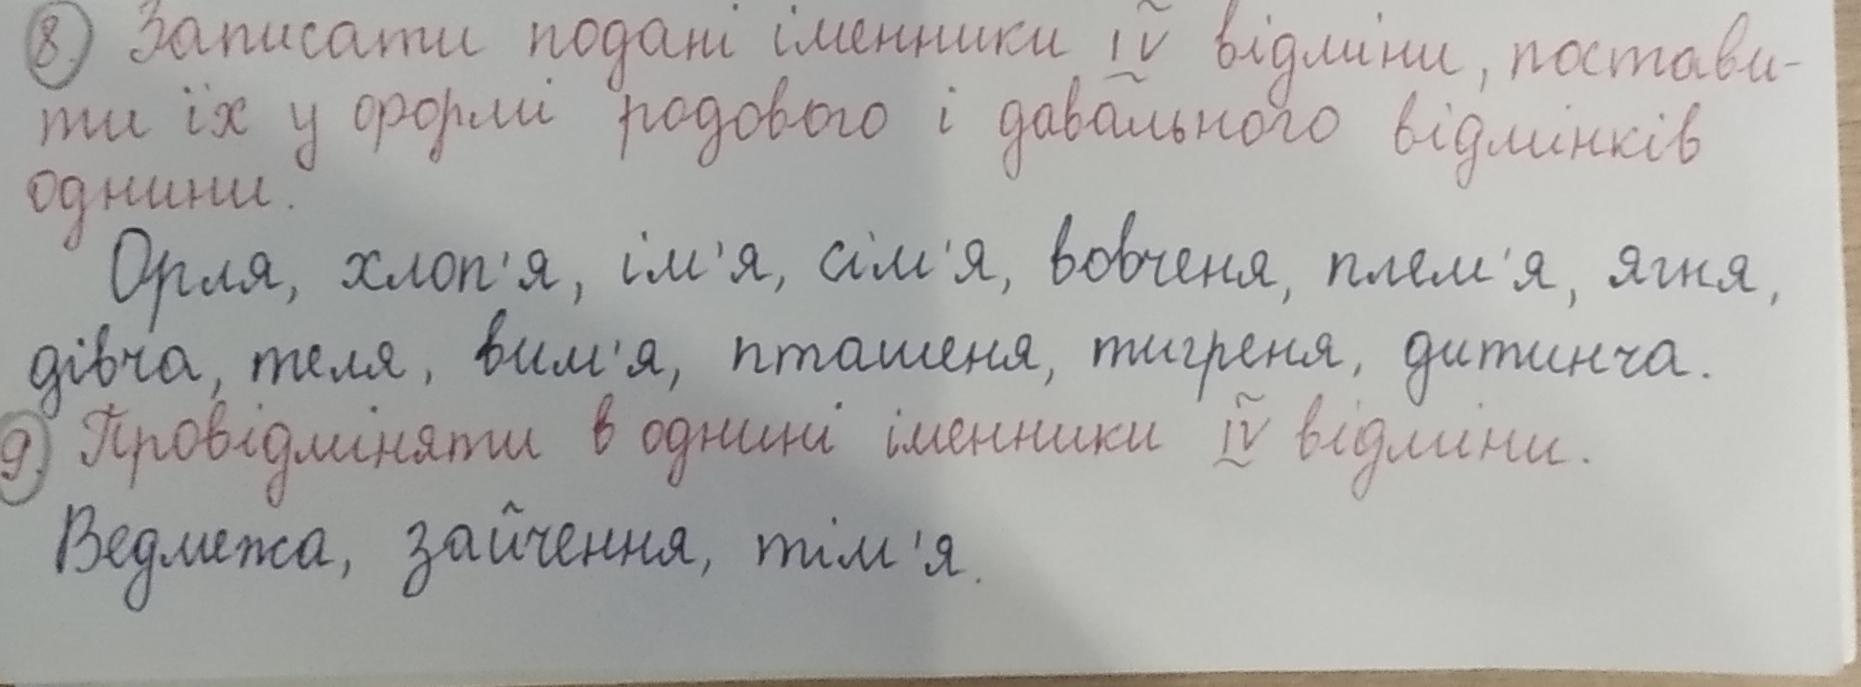 8. Записати подані іменники IV відміни, постави-
ти їх у формі родового і давального відмінків
однини.
Орля, хлоп'я, ім'я, сім'я, вовченя, плем'я, ягня,
дівча, теля, вим'я, пташеня, тигреня, дитинча.
9. Провідміняти в однині іменники IV відміни.
Ведмежа, зайчення, тім'я.